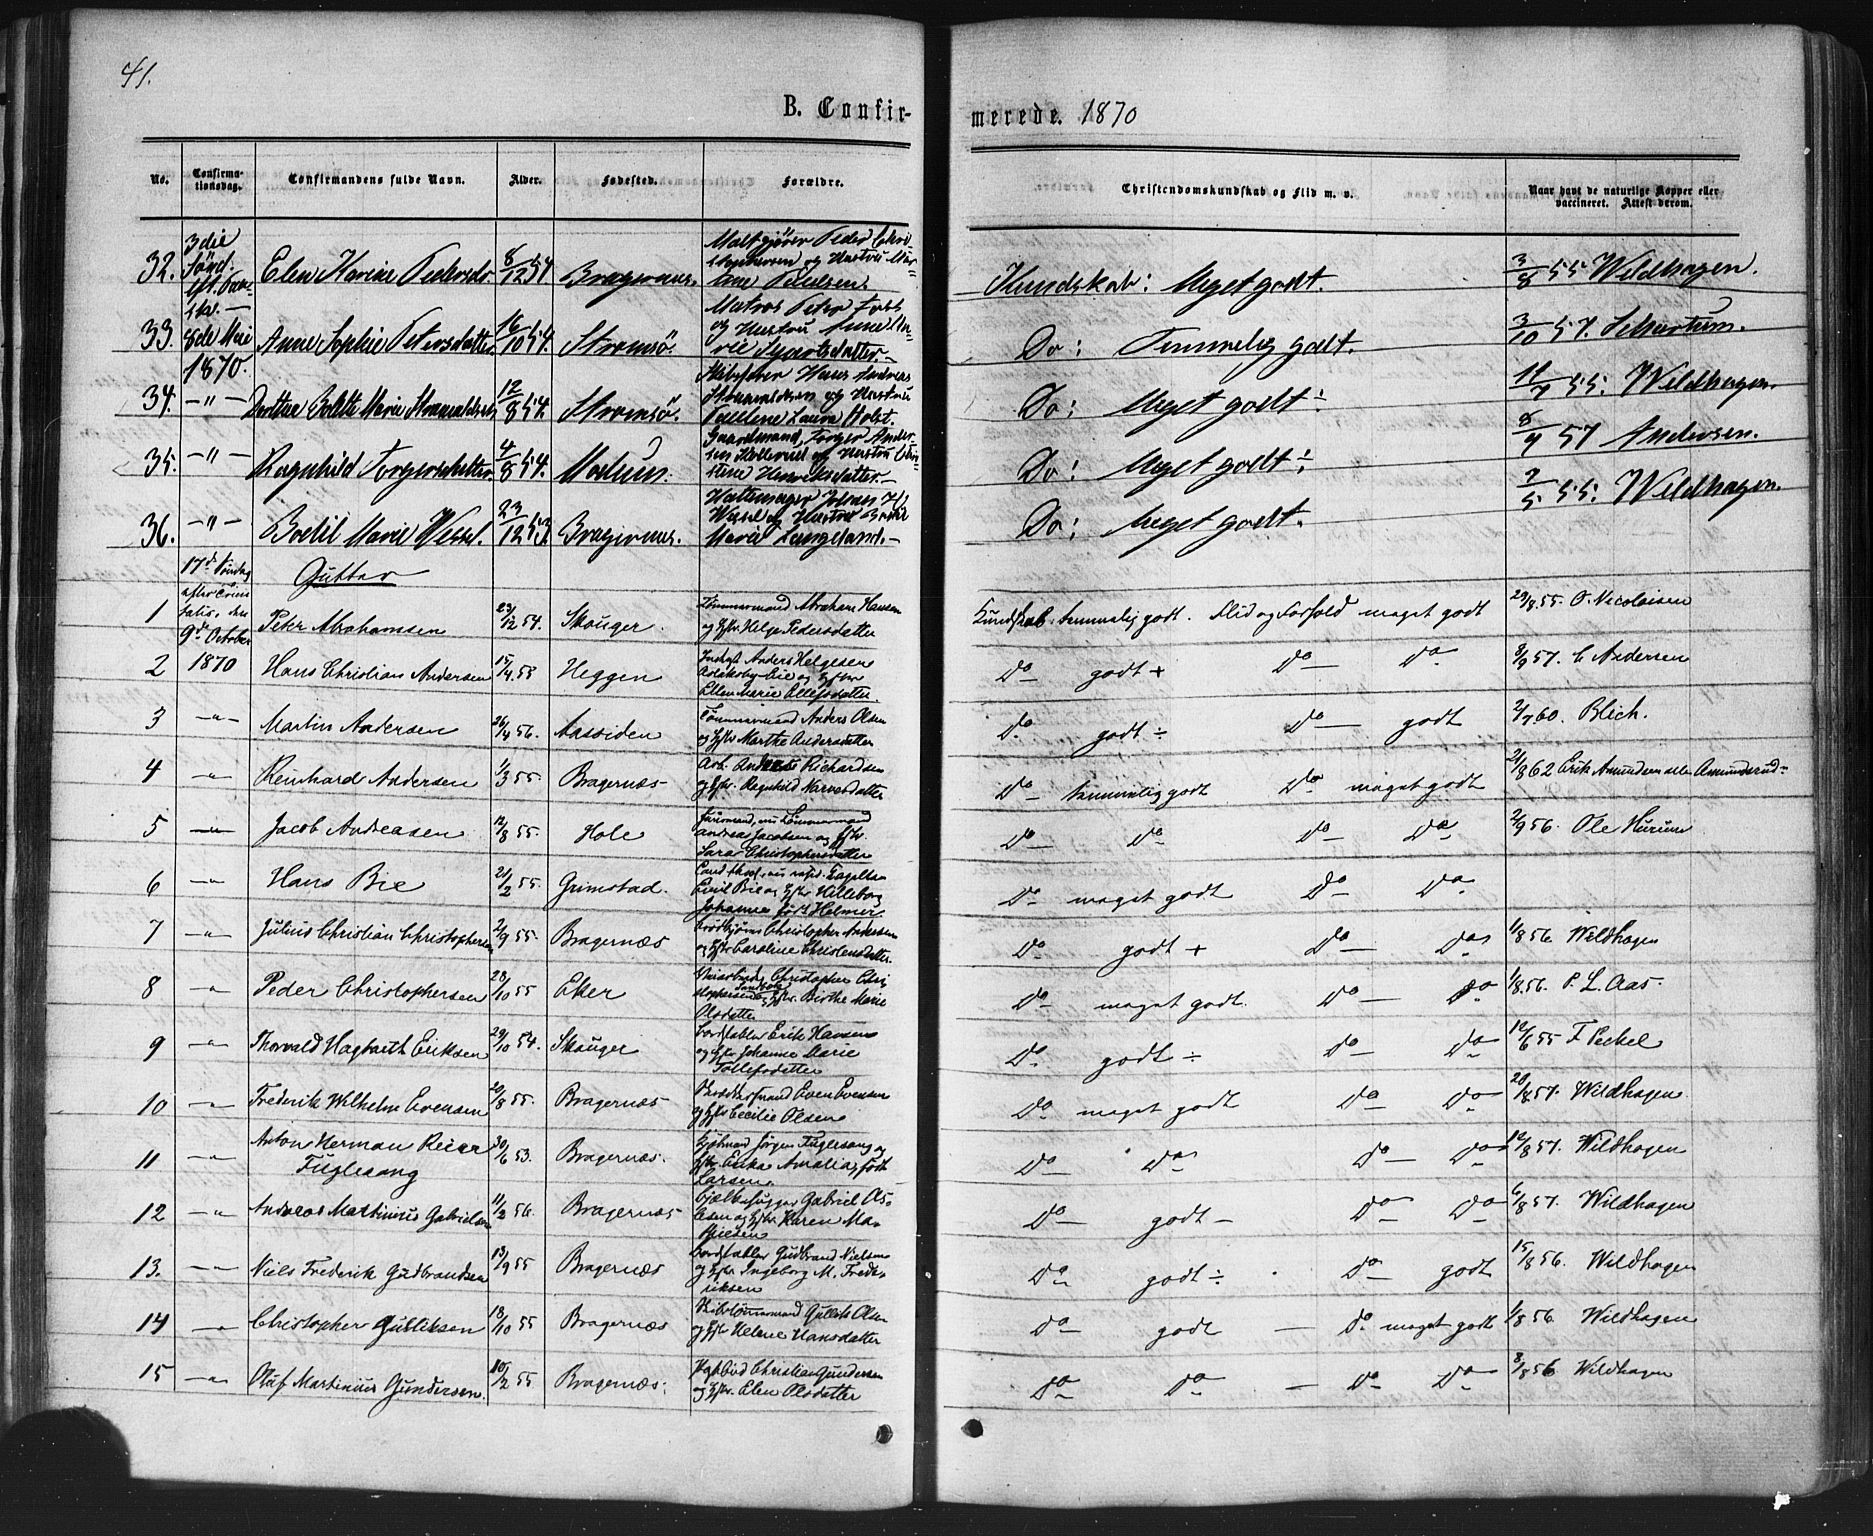 41.
B. Confirmerede. 1870
No.
Confirmationsdag.
Confirmandens fulde Navn.
Alder.
Fødested.
Forældre.
Christendomskundskab og Flid m. v.
Naar havt de naturlige Kopper eller vaccineret. Attest derom.
32. 3die Sønd. eft. Paaske. Elen Karine Pedersd. 8/12 54 Bragernæs. Peder og Hustru Kundskab: Meget godt. 3/8 55 Wildhagen.
33. 8de Mai 1870. Anne Sophie Petersdatter 16/10 54. Strømsø. Matros Peter og Hustru Anne Marie Do: Temmelig godt. 3/10 57. Schartum.
34. -"- Bolette Marie 12/8 54. Strømsø. Skibsfører Hans Andreas og Hustru Laura Holst. Do: Meget godt÷ 11/7 55: Wildhagen.
35. -"- Ragnhild Torgersdatter 4/8 54. Modum. Gaardmand Torger Andersen og Hustru Henriksdatter.- Do: Meget godt÷ 8/7 57 Andersen.
36. -"- Boelil Marie Wessel. 23/12 53. Bragernæs. Hattemager Wessel og Hustru Marie Langeland.- Do: Meget godt. 7/5 55: Wildhagen.
17de Søndag efter Trinitatis, den 9de October 1870
Gutter
1 Peter Abrahamsen 23/12 54. Skouger. Tømmermand Abraham Hansen og Hstr Helge Pedersdatter Kundskab temmelig godt. Flid og Forhold meget godt 29/8 55. O. Nicolaisen
2 Hans Christian Andersen 15/4 55 Heggen Anders Helgesen Eie og Hstr Ellen Marie Ellefsdatter Do godt + Do Do 8/9 57. C Andersen
3 -"- Martin Andersen 26/4 56. Aassiden Tømmermand Anders Olsen og Hstr Marthe Andersdatter Do godt ÷ Do godt 2/7 60. Blich.
4 -"- Reinhard Andersen 1/3 55 Bragernæs Arb. Richardsen og Hstr. Regnhild Narvesdatter Do temmelig godt Do meget godt 21/8 62 Erik Amundsen eller Amundsrud
5 -"- Jacob Andreasen 12/8 55. Hole nu Tømmermand Andreas Jacobsen og Hstr. Sara Christophersdatter Do Do Do Do 2/9 56. Ole Hurum
6 -"- Hans Bie 21/2 55. Grimstad. Emil Bie og Hstr Villeborg Johanne født Helmer Do meget godt Do Do
7 -"- Julius Christian Christophersen 2/9 55. Bragernæs Christopher Andersen og Hstr Caroline Christensdatter Do godt + Do Do 1/8 56 Wildhagen
8 -" Peder Christophersen 28/10 55 Eker Christopher Christophersen og Hstr. Birthe Marie Olsdatter Do meget godt. Do Do 1/8 56. P. L. Aas.
9 -" Thorvald Hagbarth Eriksen 29/10 54. Skouger Bordstabler Erik Hansen og Hstr Johanne Marie Tollefsdatter Do godt ÷ Do Do 12/6 55 F Peckel
10 -"- Frederik Wilhelm Evensen 20/8 55. Bragernæs Even Evensen og Hstr Cecilie Olsen Do meget godt Do Do 20/8 57. Wildhagen
11 -"- Anton Herman Reier Fuglesang 30/6 53. Bragernæs. Kjøbmand Jørgen Fuglesang og Hstr. Erika Amalia født Larsen. Do Do Do Do 12/8 57. Wildhagen
12 -"- Andreas Martinius Gabrielsen 11/2 56. Bragernæs Bjælkehugger Gabriel Olsen og Hstr. Karen Mathiesen Do godt - Do Do 6/8 57. Wildhagen
13. -"- Niels Frederik Gudbrandsen 13/9 55 Bragernæs Bordstabler Gudbrand Nielsen og Hstr Ingeborg M. Frederiksen Do godt ÷ Do godt 15/8 56. Wildhagen
14 -"- Christopher Gulliksen 18/10 55 Bragernæs Skibstømmermand Gullik Olsen og Hstr Helene Hansdatter Do godt - Do meget godt 1/8 56 Wildhagen
15 -"- Oluf Martinius Gundersen. 10/2 55. Bragernæs. Christian Gundersen og Hstr. Elen Olsdatter Do Do - Do Do 8/8 56 Wildhagen